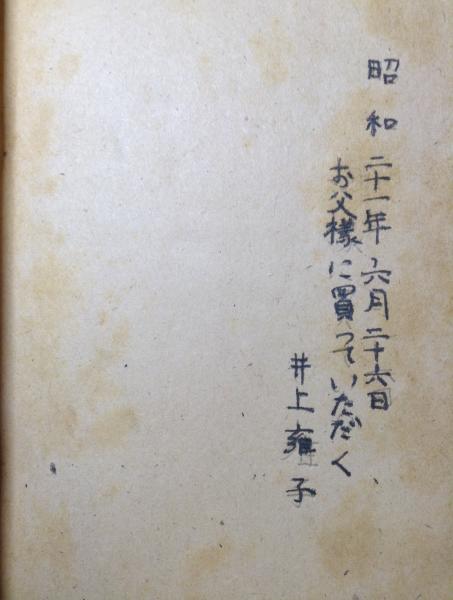 昭和二十一年六月二十六日
お父様に買っていただく
井上雍子